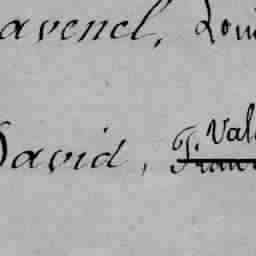 avenel, Loui
David, J. Val